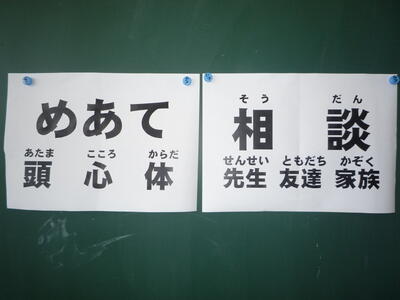 めあて
あたま こころ からだ
頭 心 体
そう だん
相談
せんせい ともだち かぞく
先生 友達 家族